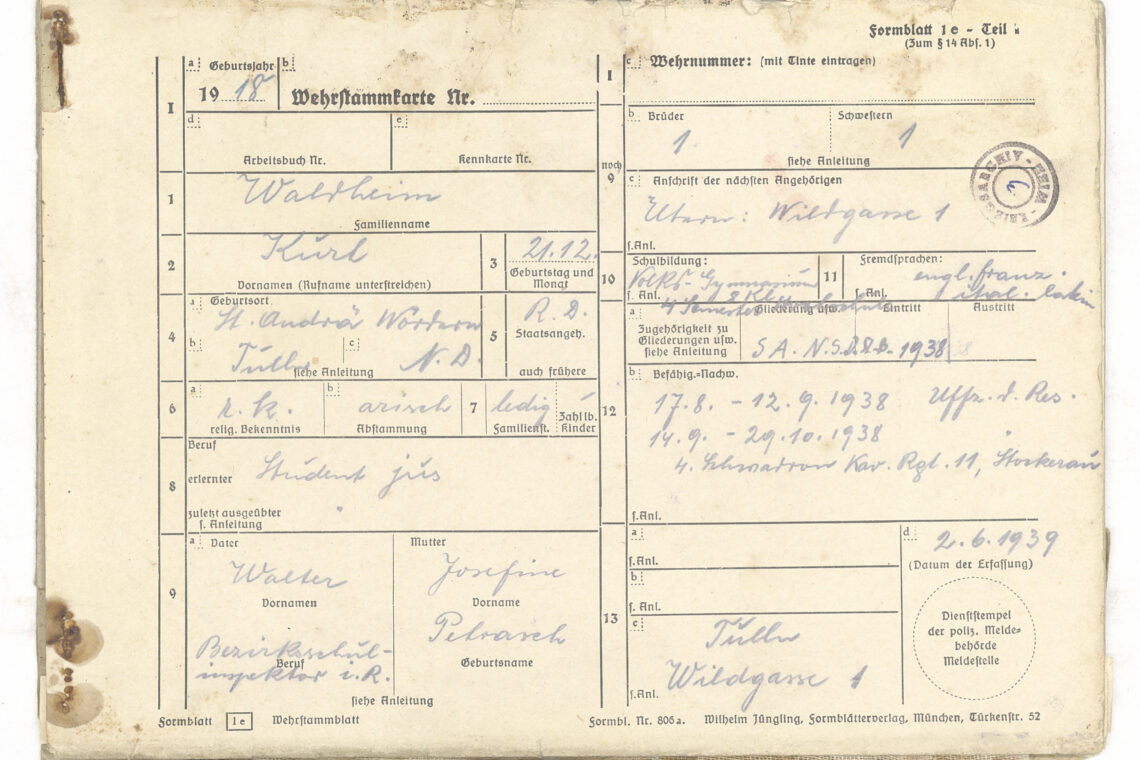 Formblatt 1e - Teil
(Zum § 14 Abs. 1)
I
a Geburtsjahr
1918
b
Wehrstammkarte Nr.
d
Arbeitsbuch Nr.
e
Kennkarte Nr.
1
Waldheim
Familienname
2
Kurt
Vornamen (Rufname unterstreichen)
3
21.12.
Geburtstag und
Monat
4
a Geburtsort
St. Andrä Wördern
b
c
Tulln N. D.
siehe Anleitung
5
R. D.
Staatsangeh.
auch frühere
6
a
r. k.
relig. Bekenntnis
b
arisch
Abstammung
7
ledig
Familienst.
Zahl lb.
Kinder
8
Beruf
erlernter
Student jus
zuletzt ausgeübter
s. Anleitung
9
a Vater
Mutter
Walter
Josefine
Vornamen
Vorname
Petrasch
Geburtsname
Bezirksschul-
Beruf
inspektor i. R.
siehe Anleitung
Formblatt 1e Wehrstammblatt
I
c Wehrnummer: (mit Tinte eintragen)
noch
9
b Brüder
1
Schwestern
1
siehe Anleitung
c Anschrift der nächsten Angehörigen
Eltern: Wildgasse 1
s. Anl.
KRIEGSARCHIV
10
Schulbildung:
Volks- Gymnasium
s. Anl.
8 Kl.
4 Semester
11
Fremdsprachen:
engl. franz.
ital. latein
s. Anl.
12
a
Zugehörigkeit zu
Gliederungen usw.
siehe Anleitung
Gliederung usw.
Eintritt
Austritt
SA. 1938
b Befähig.=Nachw.
17.8. - 12.9.1938 Uffz. d. Res.
14.9. - 29.10.1938
4. Schwadron Kav. Rgt. 11, Stockerau
s. Anl.
13
a
s. Anl.
b
s. Anl.
c
Tulln
Wildgasse 1
s. Anl.
d
2.6.1939
(Datum der Erfassung)
Dienststempel
der poliz. Melde=
behörde
Meldestelle
Formbl. Nr. 806 a. Wilhelm Jüngling, Formblätterverlag, München, Türkenstr. 52